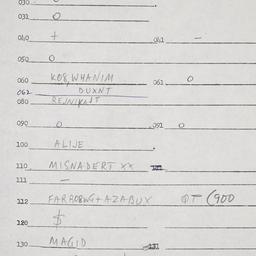 030
031 O
040 + 041 –
050 O
060 KO8, WHANIM 061 O
062 DUXNT
080 REJNIKAT
090 O 091 O
100 ALIJE
110 MISNADERT XX
111 –
112 FARROBWG + AZABUX QT (900
120 $
130 MAGID 131